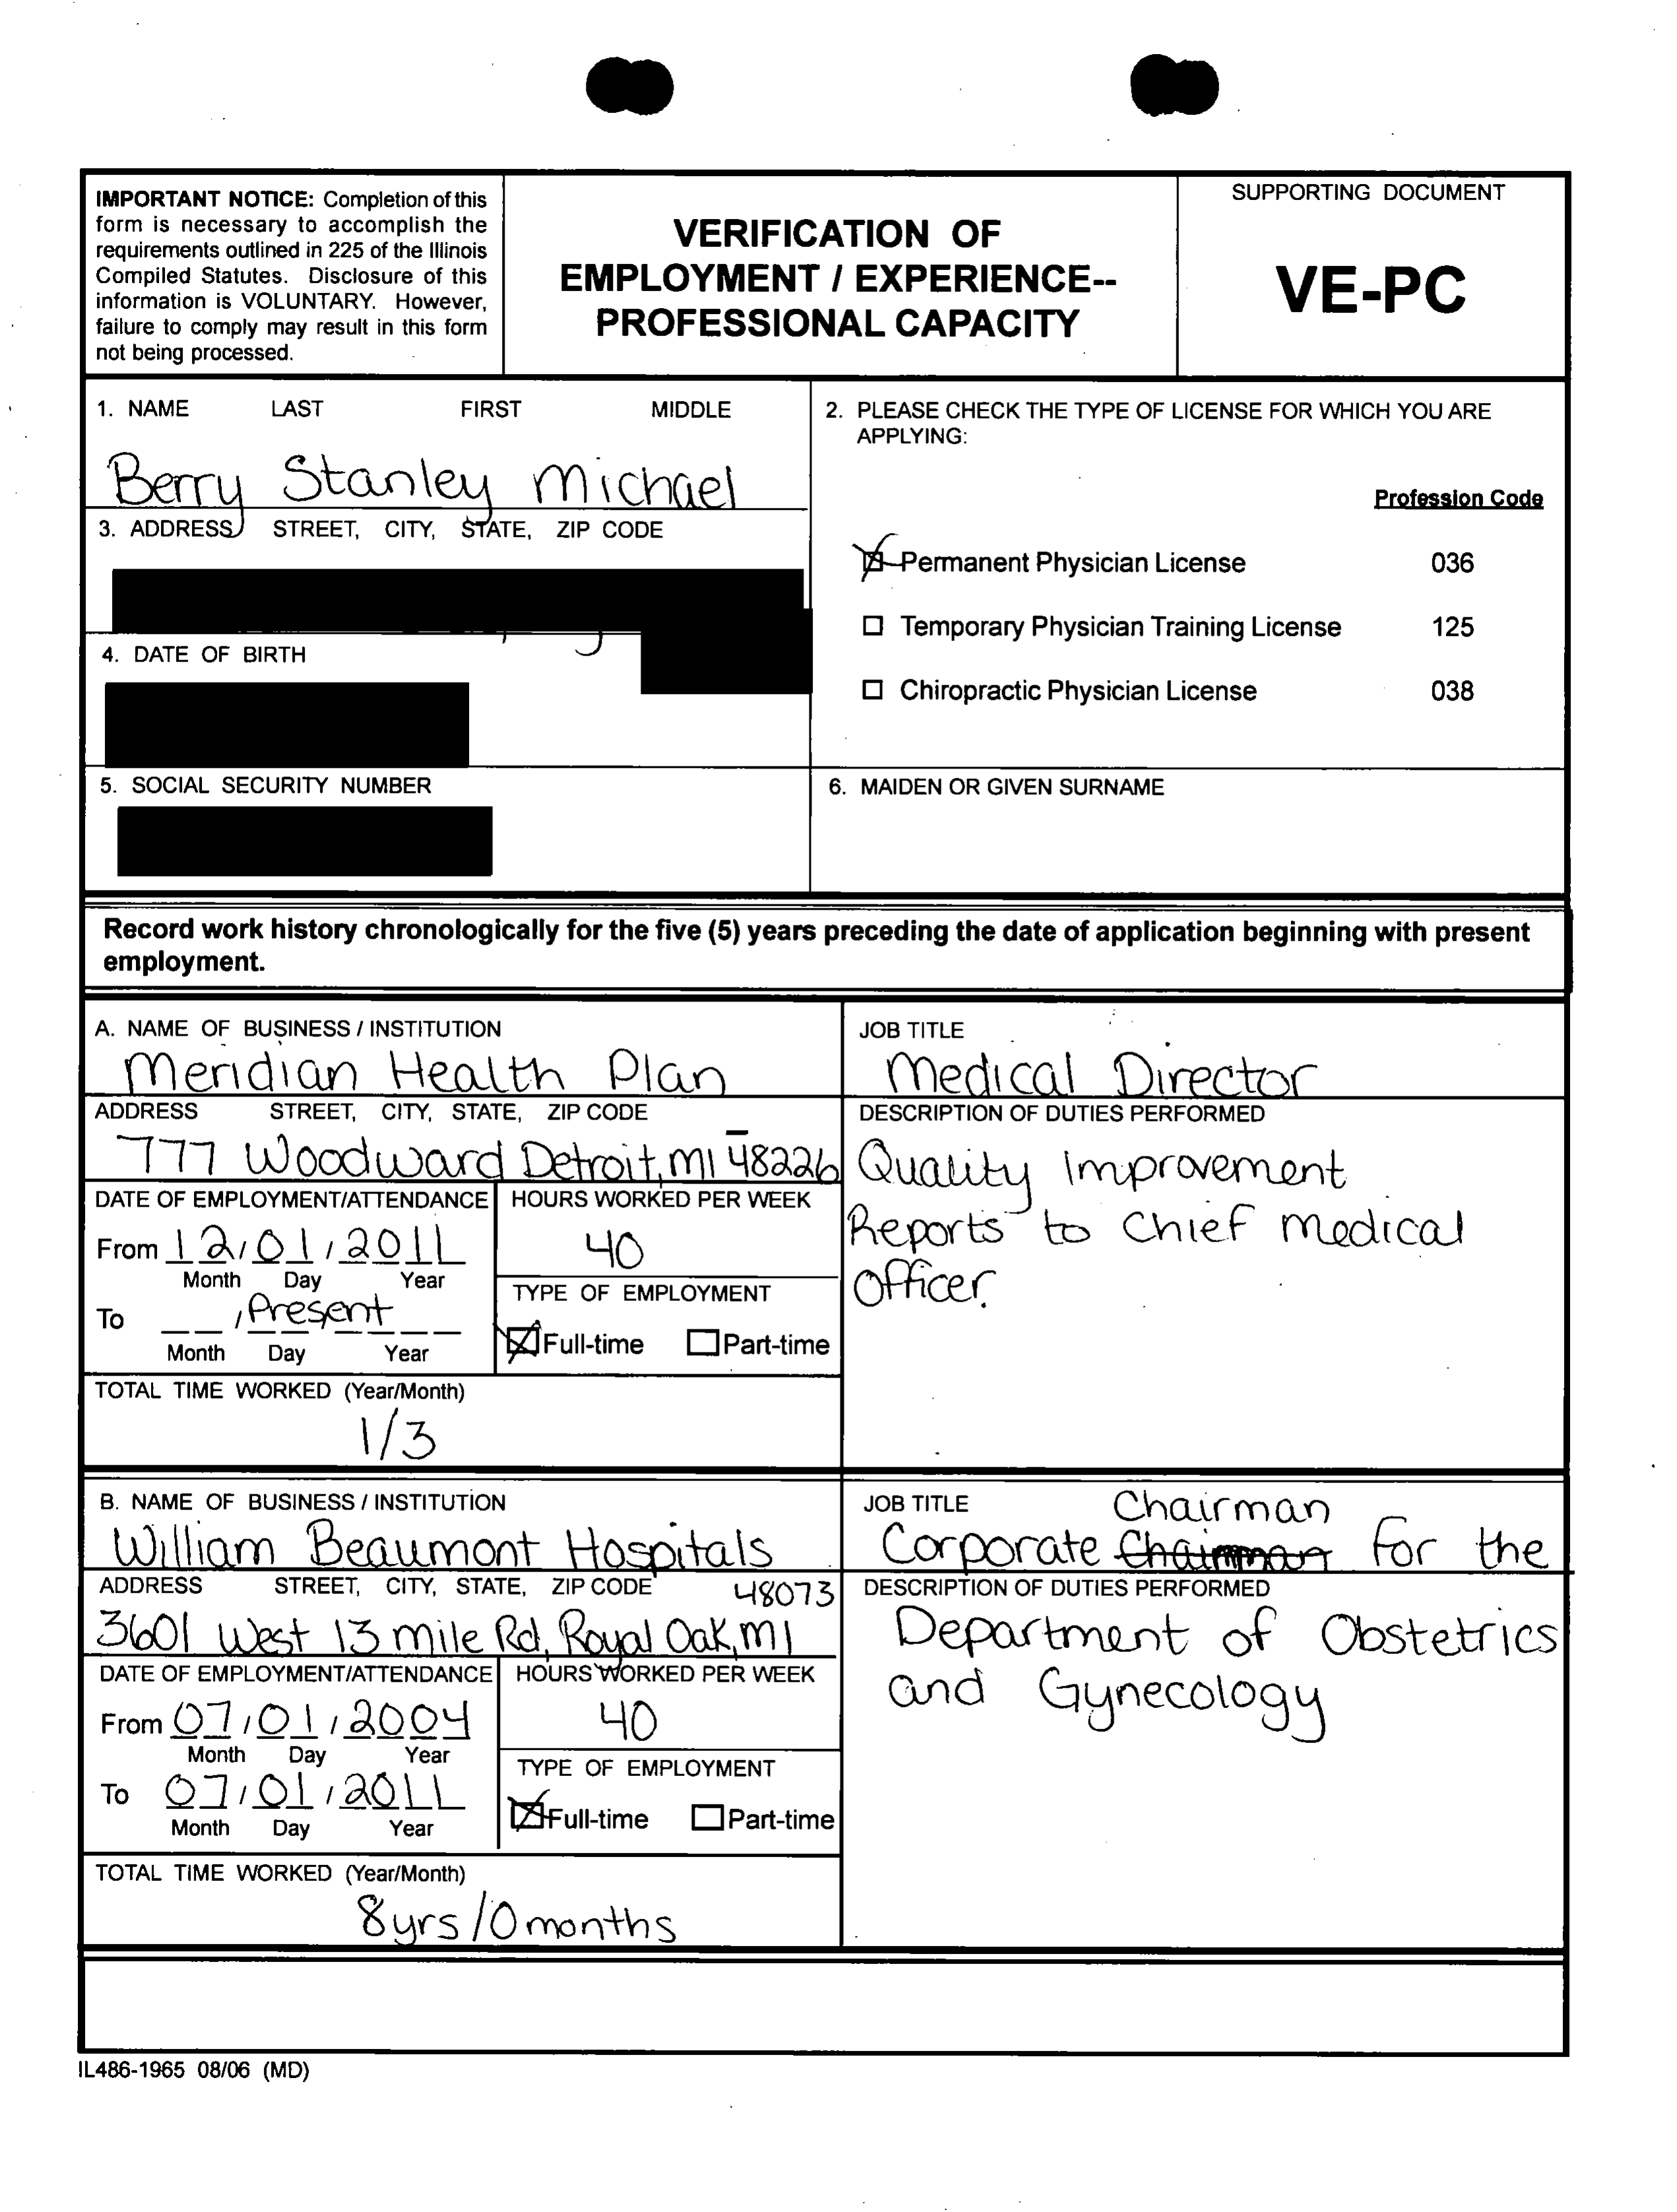 IMPORTANT NOTICE: Completion of this
form is necessary to accomplish the
requirements outlined in 225 of the Illinois
Compiled Statutes. Disclosure of this
information is VOLUNTARY. However,
failure to comply may result in this form
not being processed.
VERIFICATION OF
EMPLOYMENT / EXPERIENCE--
PROFESSIONAL CAPACITY
SUPPORTING DOCUMENT
VE-PC
1. NAME LAST FIRST MIDDLE
Berry Stanley Michael
2. PLEASE CHECK THE TYPE OF LICENSE FOR WHICH YOU ARE
APPLYING:
Profession Code
Permanent Physician License 036
Temporary Physician Training License 125
Chiropractic Physician License 038
3. ADDRESS STREET, CITY, STATE, ZIP CODE
4. DATE OF BIRTH
5. SOCIAL SECURITY NUMBER
6. MAIDEN OR GIVEN SURNAME
Record work history chronologically for the five (5) years preceding the date of application beginning with present
employment.
A. NAME OF BUSINESS / INSTITUTION
Meridian Health Plan
JOB TITLE
Medical Director
ADDRESS STREET, CITY, STATE, ZIP CODE
777 Woodward Detroit, MI 48226
DESCRIPTION OF DUTIES PERFORMED
Quality Improvement
Reports to Chief Medical
Officer.
DATE OF EMPLOYMENT/ATTENDANCE
From 12/01/2011
Month Day Year
To Present
Month Day Year
HOURS WORKED PER WEEK
40
TYPE OF EMPLOYMENT
Full-time Part-time
TOTAL TIME WORKED (Year/Month)
1/3
B. NAME OF BUSINESS / INSTITUTION
William Beaumont Hospitals
JOB TITLE
Chairman
Corporate Chairman for the
ADDRESS STREET, CITY, STATE, ZIP CODE 48073
3601 West 13 Mile Rd, Royal Oak, MI
DESCRIPTION OF DUTIES PERFORMED
Department of Obstetrics
and Gynecology
DATE OF EMPLOYMENT/ATTENDANCE
From 07/01/2004
Month Day Year
To 07/01/2011
Month Day Year
HOURS WORKED PER WEEK
40
TYPE OF EMPLOYMENT
Full-time Part-time
TOTAL TIME WORKED (Year/Month)
8yrs/0months
IL486-1965 08/06 (MD)